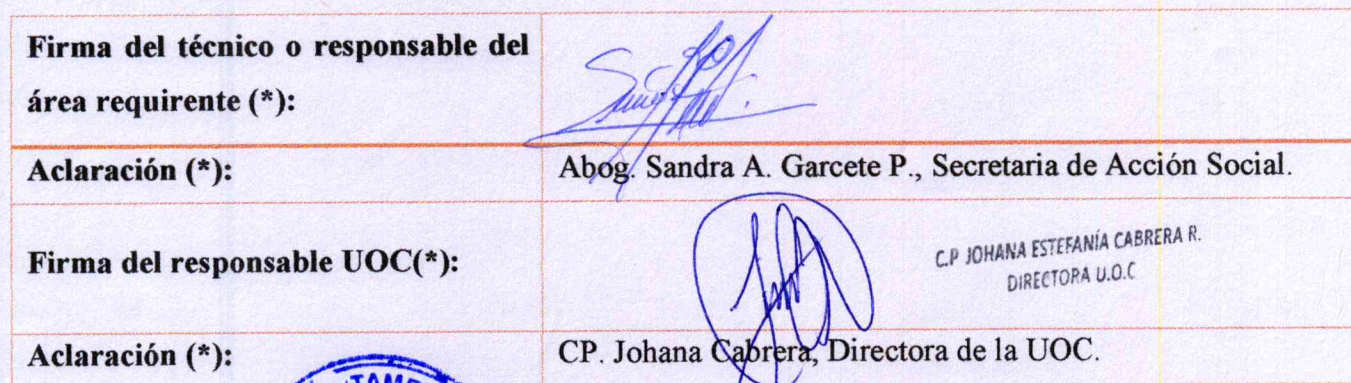 Firma del técnico o responsable del
área requirente (*):
Aclaración (*):
Abog. Sandra A. Garcete P., Secretaria de Acción Social.
Firma del responsable UOC(*):
C.P JOHANA ESTEFANÍA CABRERA R.
DIRECTORA U.O.C
Aclaración (*):
CP. Johana Cabrera, Directora de la UOC.